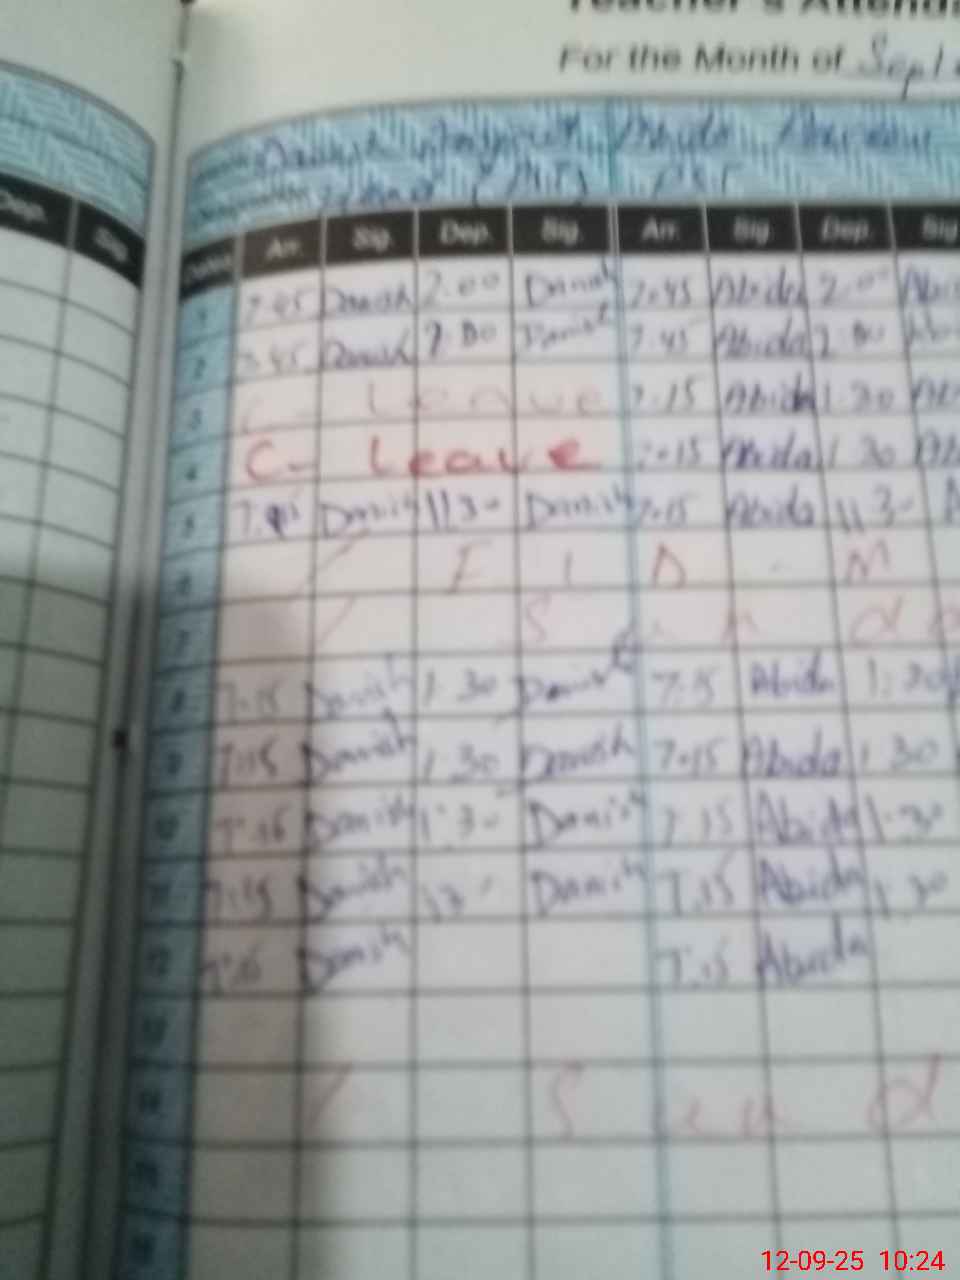 Teacher's Attenda
For the Month of Septe
Danish
Abida
Dep. Sig.
Dates Arr. Sig. Dep. Sig. Arr. Sig. Dep. Sig
1 7.45 Danish 2.00 Danish 7.45 Abida 2.0 Abid
2 7.45 Danish 2.00 Danish 7.45 Abida 2.00
3 C - Leave 7.15 Abida 1.30 Ab
4 C- Leave 7.15 Abida 1 30 Ab
5 Danish 1130 Danish 7.15 Abida 1130 A
6 E I D - M
7 S u n d a
8 7.15 Danish 1.30 Danish 7.15 Abida 1:30
9 7.15 Danish 1.30 Danish 7.15 Abida 1 30
10 7.15 Danish 1.30 Danish 7.15 Abida 1.30
11 7.15 Danish Danish 7.15 Abida 1.30
12 7.15 Danish 7.15 Abida
13
14 S u n d
15
16
12-09-25 10:24